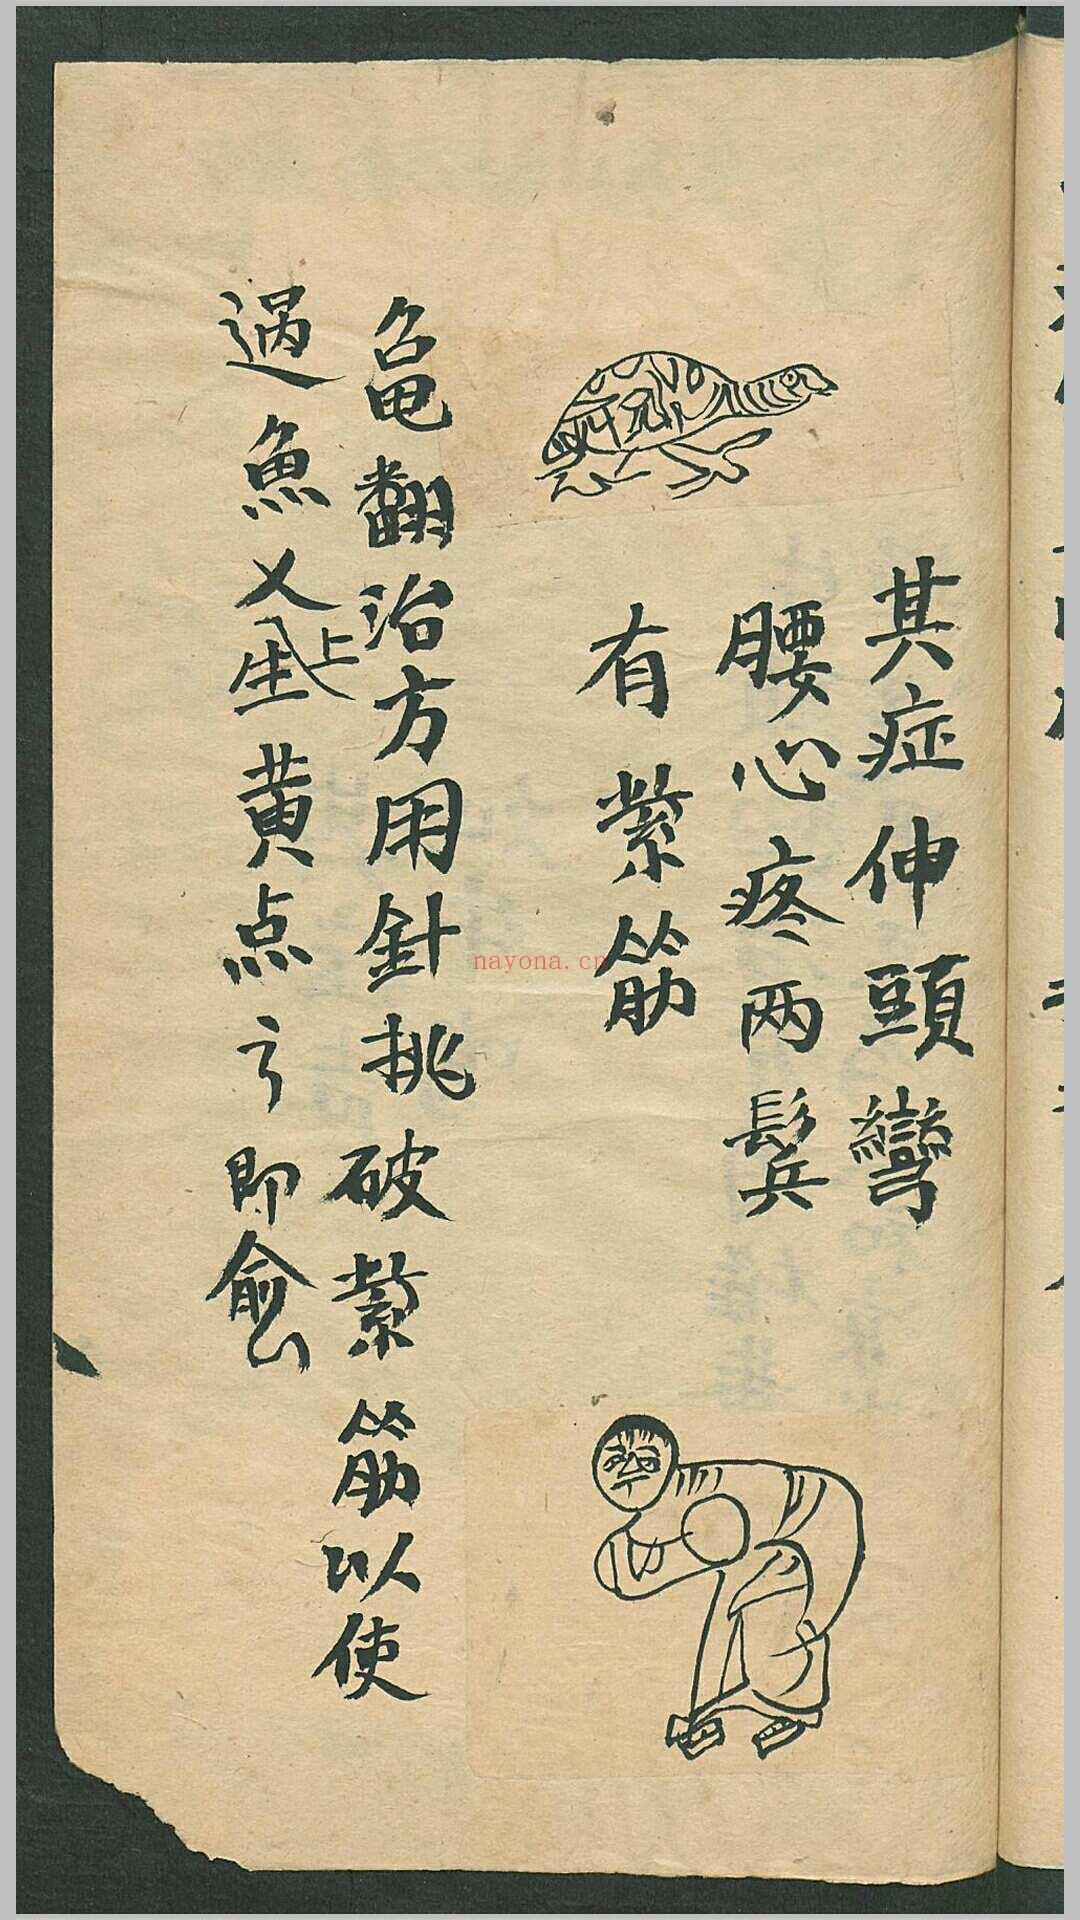 其症伸頭彎
腰心疼两鬓
有紫筋
亀翻治方用針挑破紫筋以使
過魚人生上黄点之即愈
nayona.cn